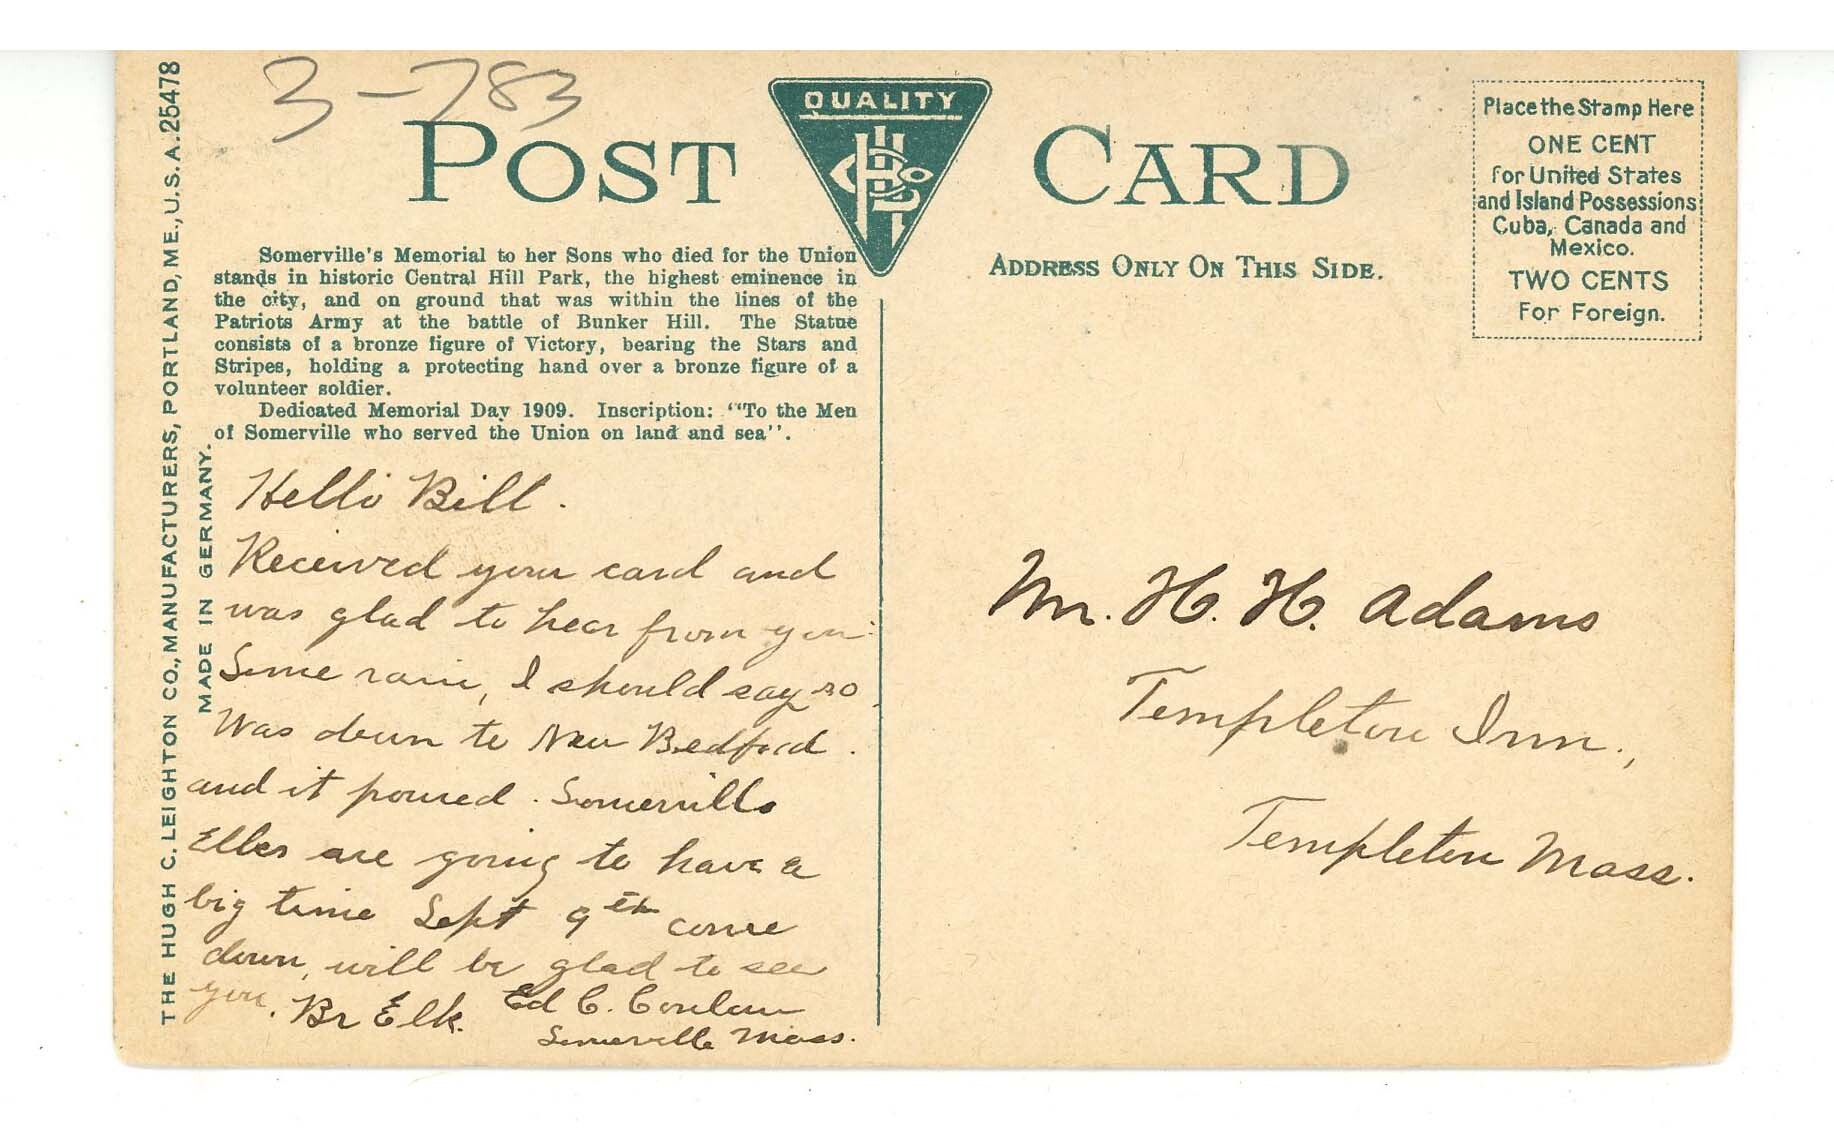 3-783
POST CARD
QUALITY
Place the Stamp Here
ONE CENT
for United States
and Island Possessions
Cuba, Canada and
Mexico.
TWO CENTS
For Foreign.
ADDRESS ONLY ON THIS SIDE.
Somerville's Memorial to her Sons who died for the Union
stands in historic Central Hill Park, the highest eminence in
the city, and on ground that was within the lines of the
Patriots Army at the battle of Bunker Hill. The Statue
consists of a bronze figure of Victory, bearing the Stars and
Stripes, holding a protecting hand over a bronze figure of a
volunteer soldier.
Dedicated Memorial Day 1909. Inscription: "To the Men
of Somerville who served the Union on land and sea".
THE HUGH C. LEIGHTON CO., MANUFACTURERS, PORTLAND, ME., U.S.A. 25478
MADE IN GERMANY.
Hello Bill.
Received your card and
was glad to hear from you.
Some rain, I should say so
Was down to New Bedford.
and it poured. Somerville
Elks are going to have a
big time Sept 9th come
down, will be glad to see
you. Br Elk. Ed C. Conlan
Somerville Mass.
Mr. H. H. Adams
Templeton Inn.,
Templeton Mass.